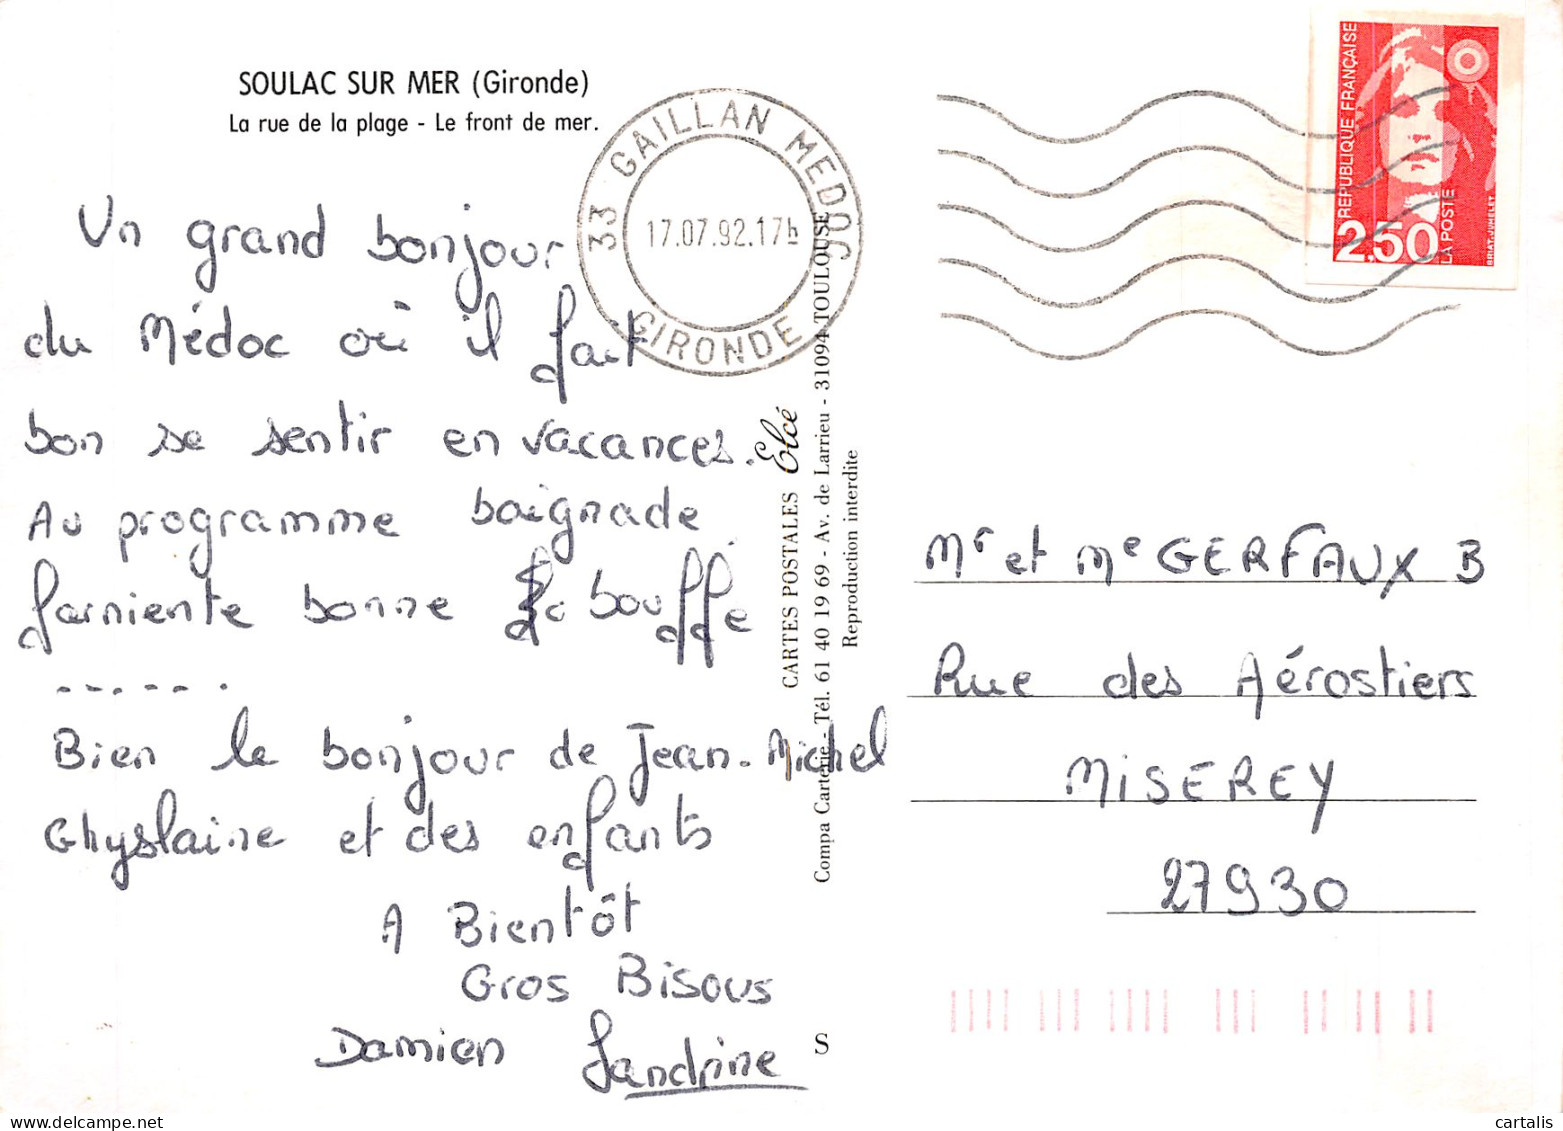 SOULAC SUR MER (Gironde)
La rue de la plage - Le front de mer.
Un grand bonjour
du Médoc où il fait
bon se sentir en vacances.
Au programme baignade
farniente bonne bouffe
------.
Bien le bonjour de Jean-Michel
Ghyslaine et des enfants
A Bientôt
Gros Bisous
Damien Sandrine
33 GAILLAN MEDOC
17.07.92.17h
GIRONDE
CARTES POSTALES Elcé
Compa Carterie - Tél. 61 40 19 69 - Av. de Larrieu - 31094 TOULOUSE
Reproduction interdite
S
REPUBLIQUE FRANÇAISE
2.50
LA POSTE
BRIAT-JUMELET
Mr et Me GERFAUX B
Rue des Aérostiers
MISEREY
27930
cartalis